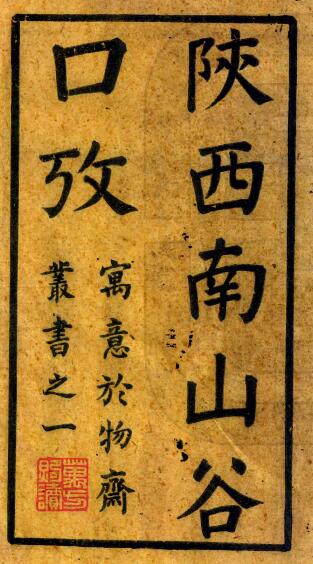 陝西南山谷
口攷
寓意於物齋
叢書之一